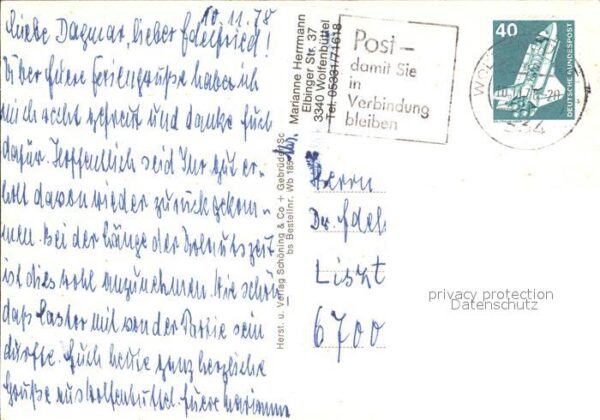 10.11.78
Liebe Dagmar, lieber Edelfried!
Über Eure Feriengrüße habe ich
mich echt gefreut und danke Euch
dafür. Hoffentlich seid Ihr gut er-
holt davon wieder zurückgekom-
men. Bei der Länge der Urlaubszeit
ist dies wohl anzunehmen. Wie schön
daß Castor mit von der Partie sein
durfte. Euch heute ganz herzliche
Grüße aus Wolfenbüttel. Eure Marianne
Marianne Herrmann
Ebinger Str. 37
3340 Wolfenbüttel
Tel. 05331/71618
Herst. u. Verlag Schöning & Co + Gebrüder Sc
bs Bestellnr. Wb 185
Post –
damit Sie
in
Verbindung
bleiben
40
DEUTSCHE BUNDESPOST
334
Herrn
Dr. Edel
Liszt
6700
privacy protection
Datenschutz